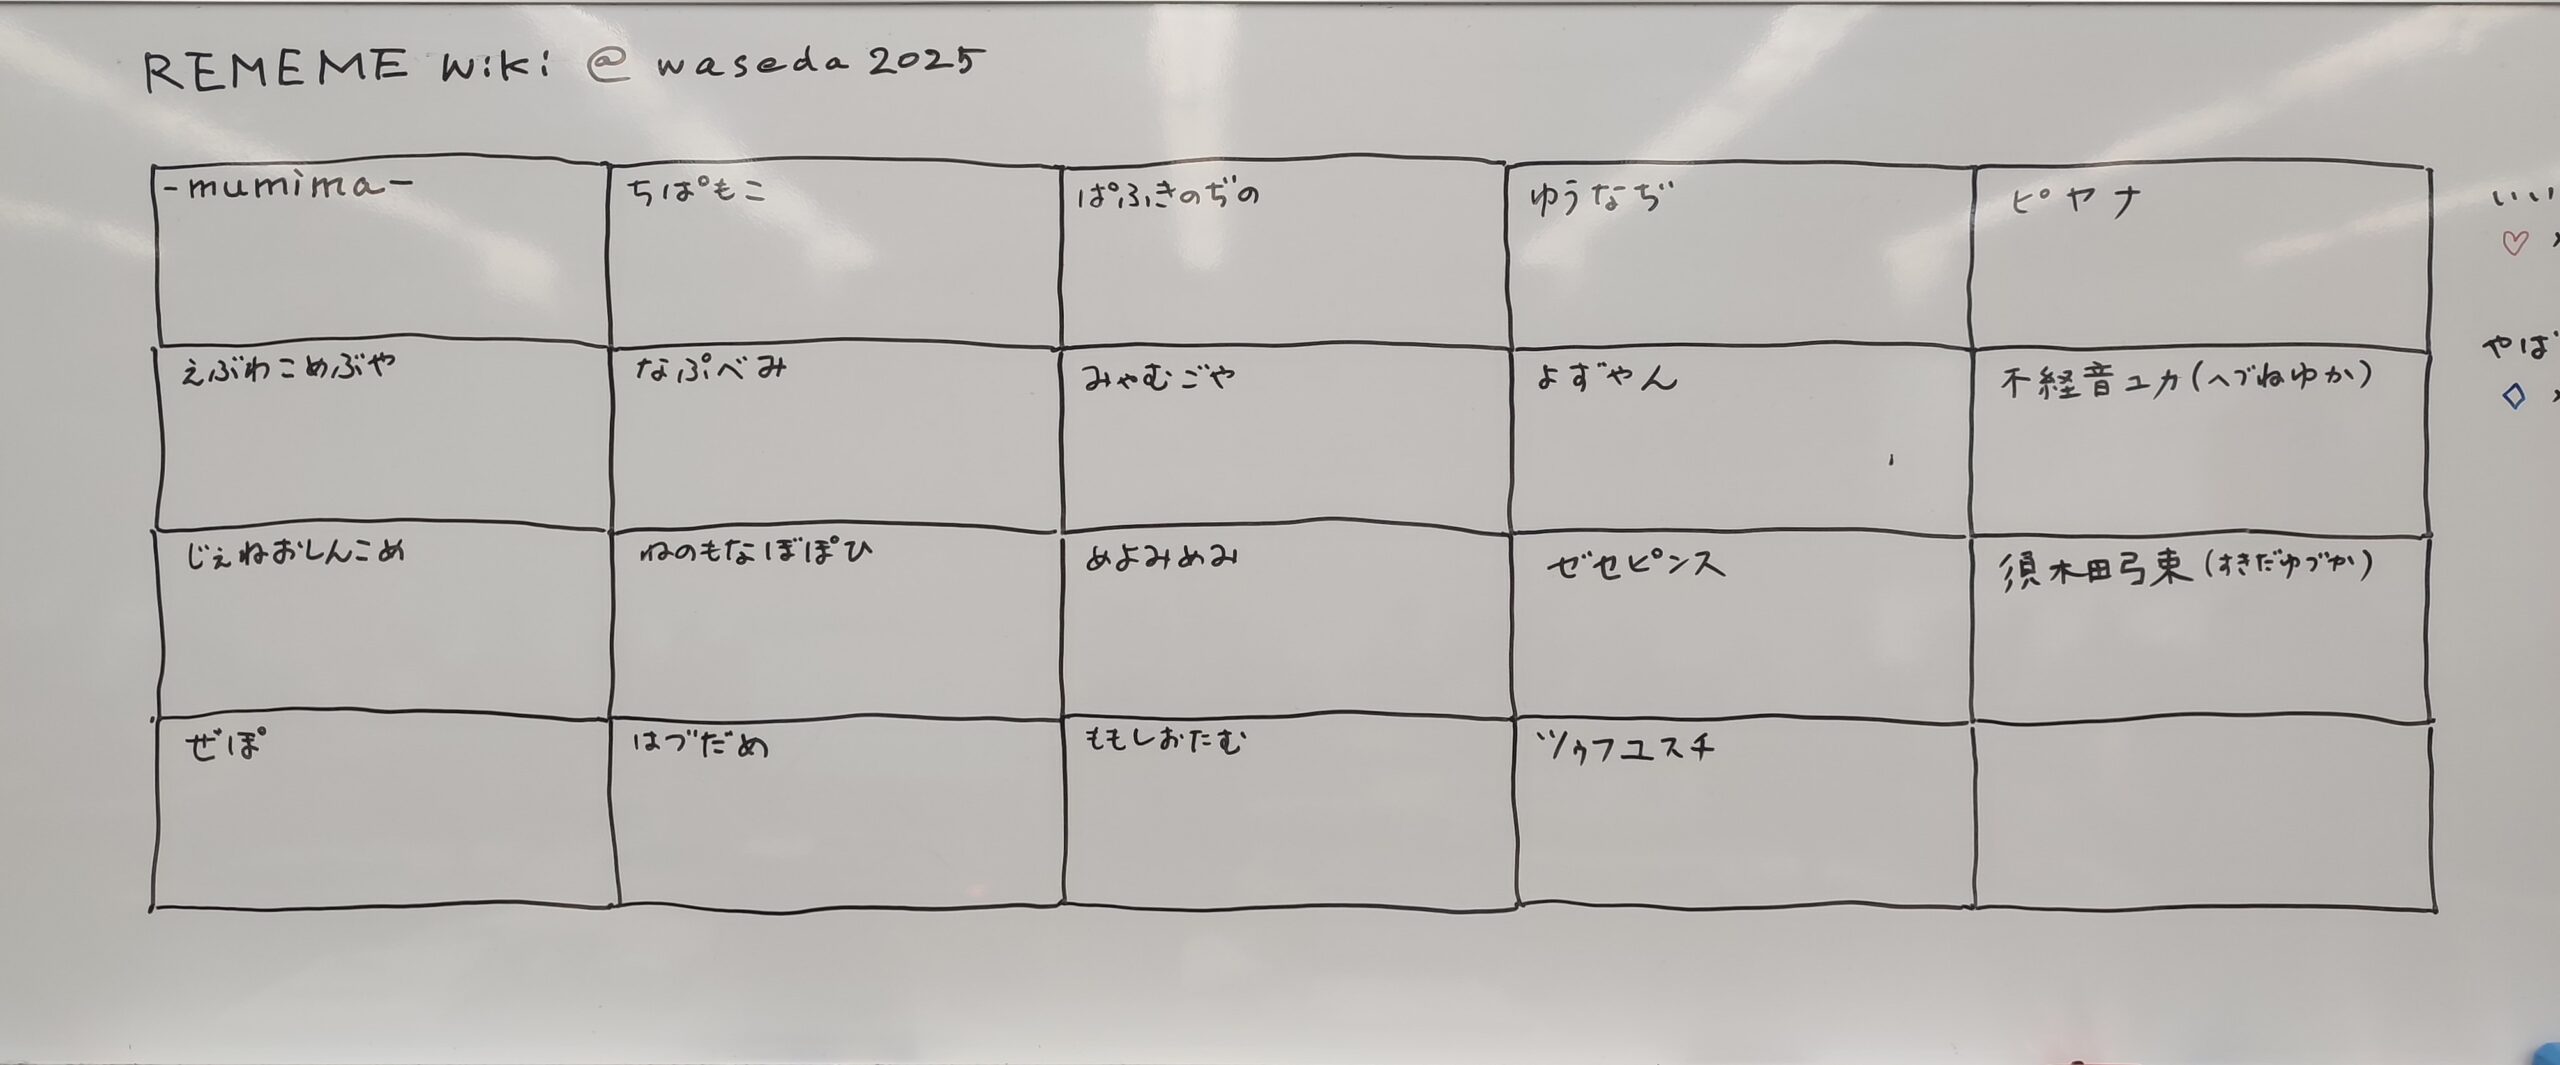 REMEME wiki @ waseda 2025
-mumima-
ちぱもこ
ぱふきのぢの
ゆうなぢ
ピヤナ
えぶわこめぶや
なぷべみ
みゃむごや
よずやん
不経音ユカ(へづねゆか)
じぇねおしんこめ
ねのもなぼぽひ
めよみめみ
ゼセピンス
須木田弓束(すきだゆづか)
ぜぽ
はづだめ
ももしおたむ
ヅゥフユスチ
いい
♡
やば
◇